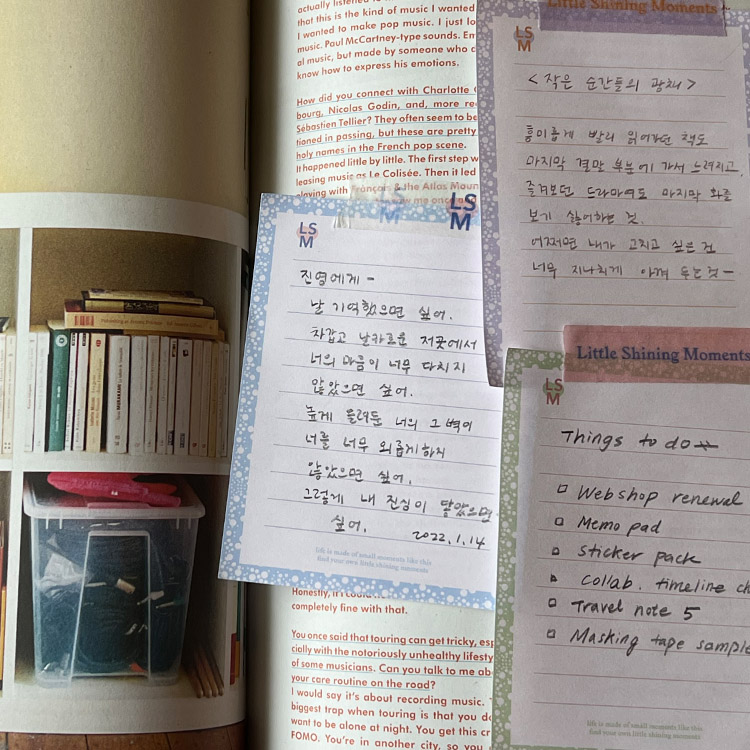 actually listened to
that this is the kind of music I wanted
I wanted to make pop music. I just lo
music. Paul McCartney-type sounds. Em
al music, but made by someone who d
know how to express his emotions.
How did you connect with Charlotte
bourg, Nicolas Godin, and, more re
Sébastien Tellier? They often seem to be
tioned in passing, but these are pretty
holy names in the French pop scene.
It happened little by little. The first step w
leasing music as Le Colisée. Then it led
playing with François & the Atlas Moun
me once
LSM
진영에게 -
날 기억했으면 싶어.
차갑고 날카로운 저곳에서
너의 마음이 너무 다치지
않았으면 싶어.
높게 올려둔 너의 그 벽이
너를 너무 외롭게하지
않았으면 싶어.
그렇게 내 진심이 닿았으면
싶어. 2022.1.14
life is made of small moments like this
find your own little shining moments
LSM
Honestly,
completely fine with that.
You once said that touring can get tricky, esp
cially with the notoriously unhealthy lifesty
of some musicians. Can you talk to me ab
your care routine on the road?
I would say it's about recording music.
biggest trap when touring is that you d
want to be alone at night. You get this cr
FOMO. You're in another city, so you
Little Shining Moments
LSM
<작은 순간들의 광채>
흥미롭게 빨리 읽어가던 책도
마지막 결말 부분에 가서 느려지고,
즐겨보던 드라마여도 마지막 화를
보기 싫어하는 것.
어쩌면 내가 고치고 싶은 건
너무 지나치게 아껴 두는 것-
Little Shining Moments
LSM
Things to do
Webshop renewal
Memo pad
Sticker pack
Collab. timeline ch
Travel note 5
Masking tape sample
life is made of small moments like this
find your own little shining moments